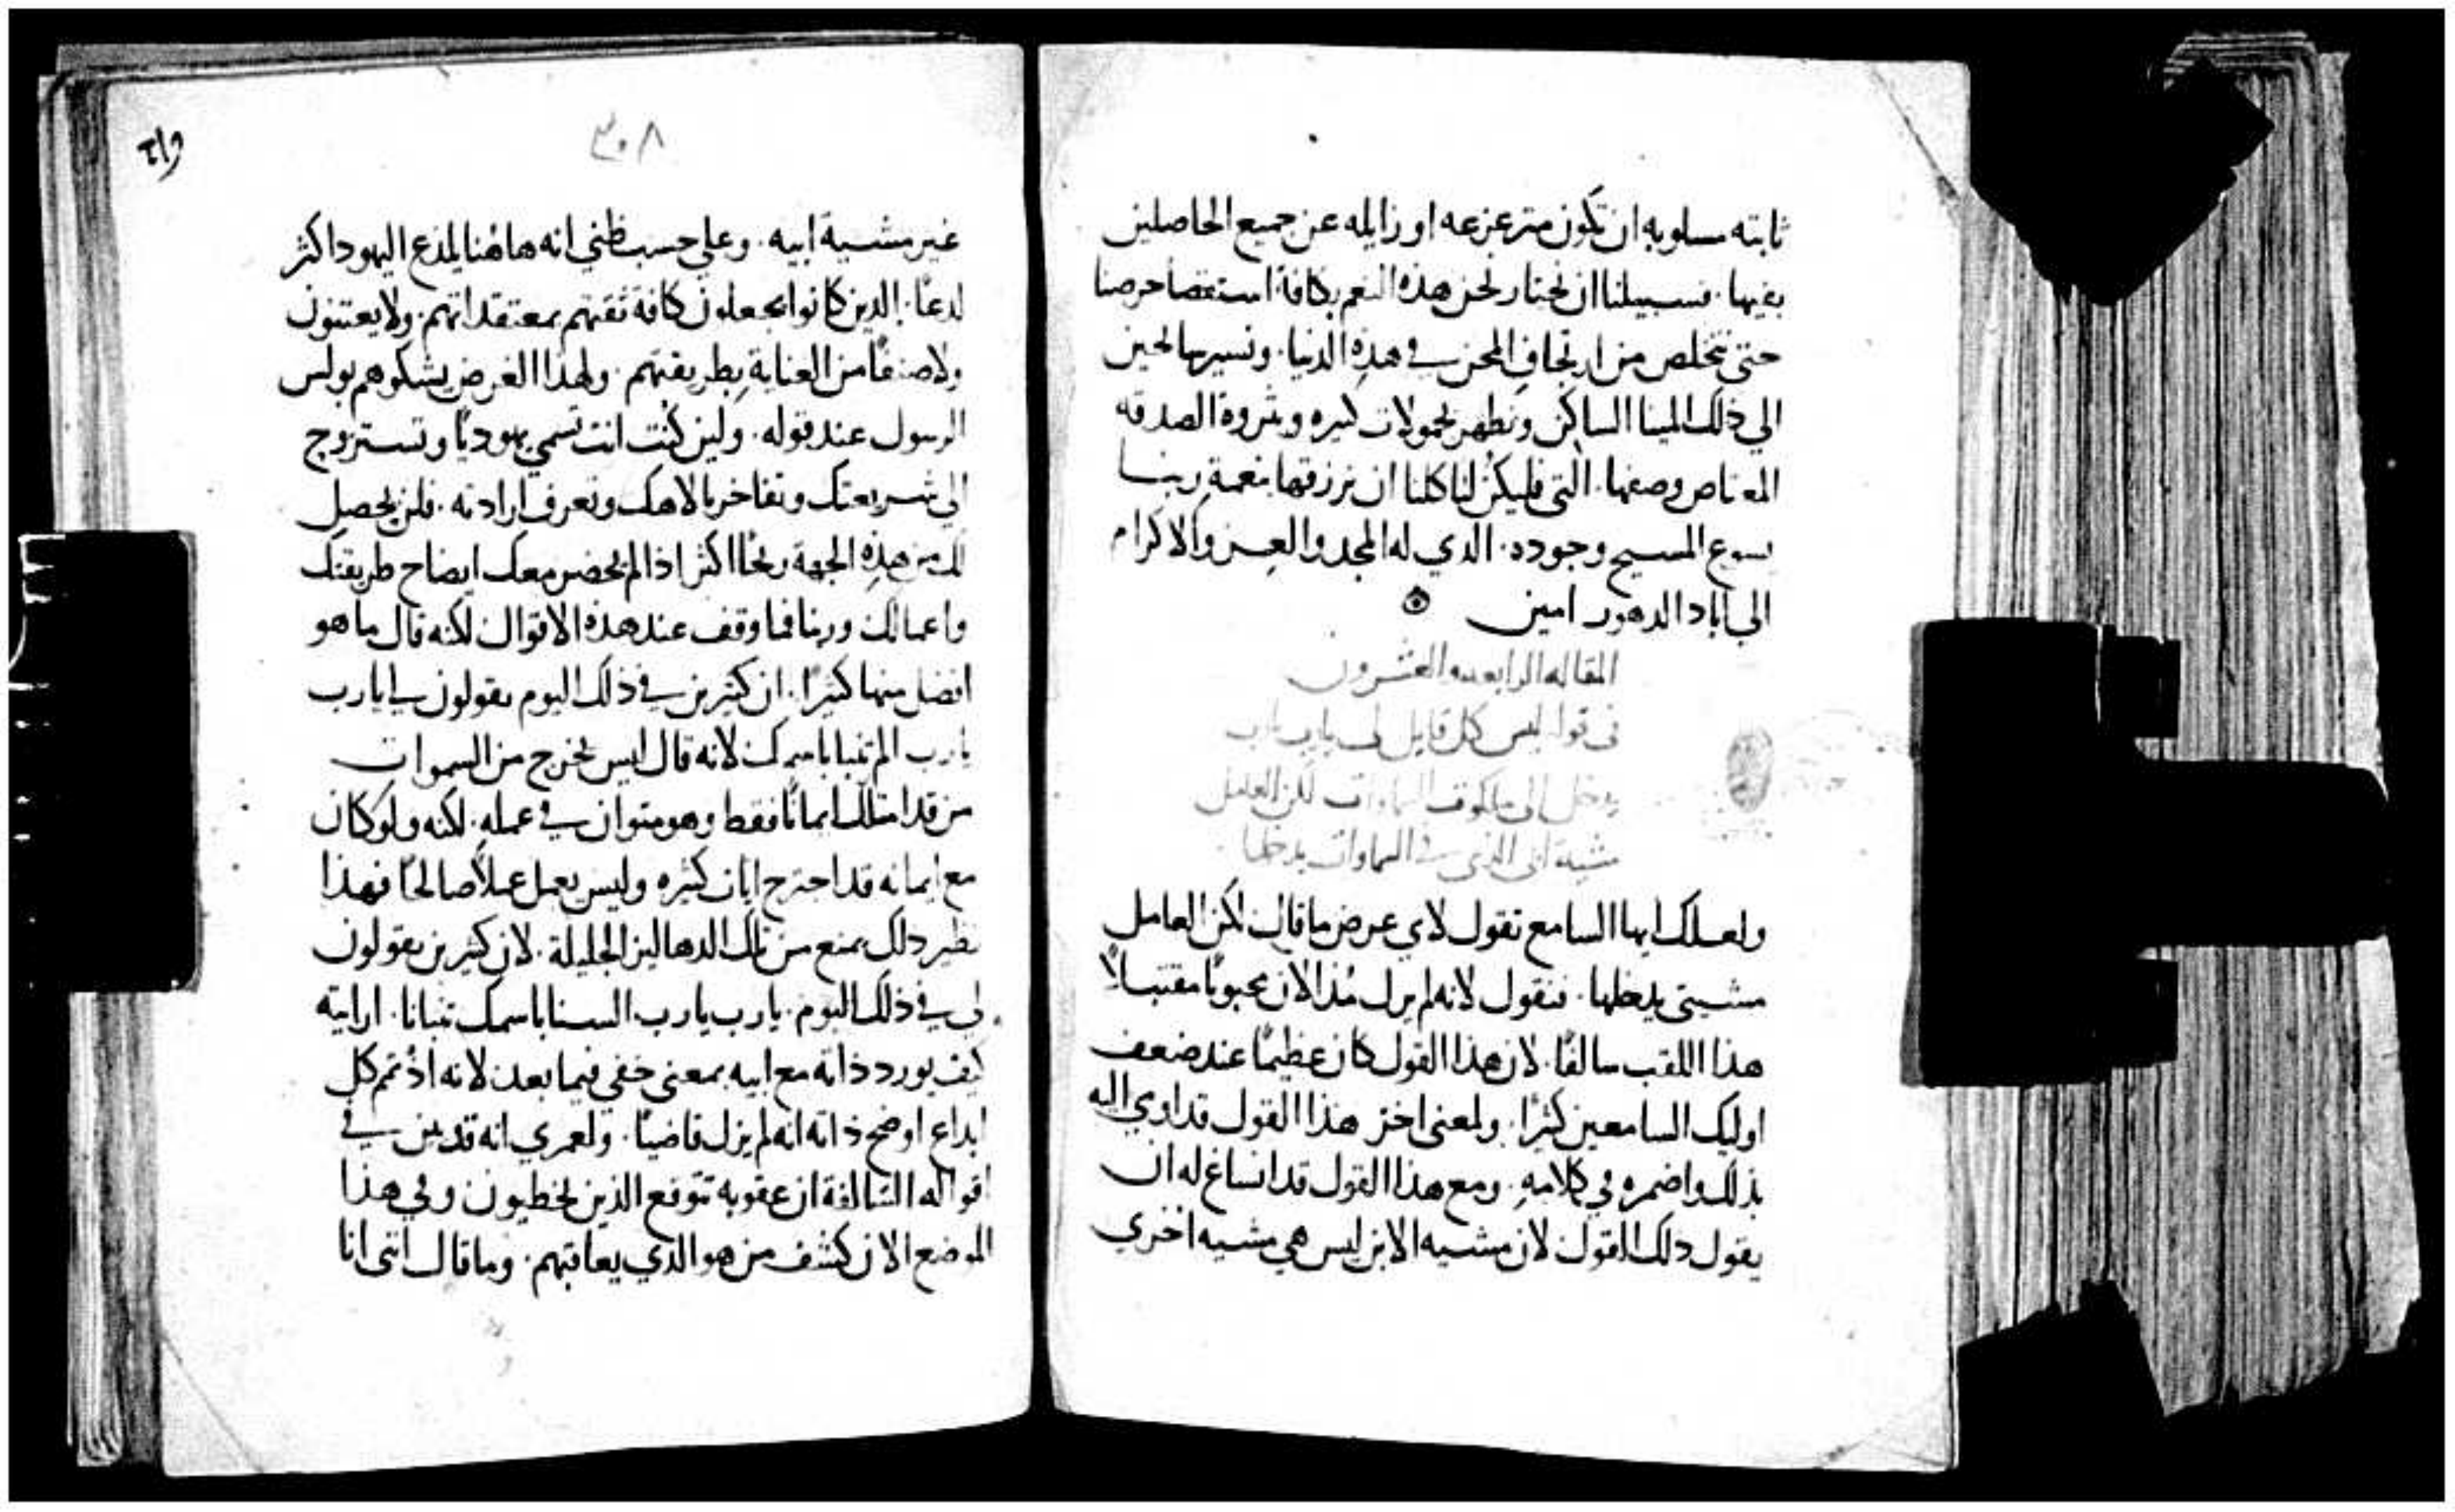 ثابته مسلوبه ان تكون متزعزعه او زايله عن جميع الحاصلين
بغيها. فسبيلنا ان نختار نحن هذه النعم بكافة استقصا حرصنا
حتى نتخلص من ارتجاف المحن في هذه الدنيا. ونسير سالمين
الي ذلك المينا الساكن ونظهر بحمولات كثيره وبثروة الصدقه
المعتاص وصفها. التي فليكن لنا كلنا ان نرزقها بنعمة ربنا
يسوع المسيح وجوده. الذي له المجد والعز والاكرام
الي اباد الدهور امين
المقاله الرابعه والعشرون
في قوله ليس كل قايل لي يارب يارب
يدخل الي ملكوت السماوات لكن العامل
مشية ابي الذي في السماوات يدخلها
ولعلك ايها السامع تقول لاي عرض ما قال لكن العامل
مشيتي يدخلها. فنقول لانه لم يزل مُذ الان محبوبًا مقتبلاً
هذا اللقب سالفًا. لان هذا القول كان عظيمًا عند ضعف
اوليك السامعين كثيرًا. ولمعنى اخر هذا القول قد اوي اليه
بذلك واضمره في كلامهِ. ومع هذا القول قد انساغ له ان
يقول ذلك القول لان مشيه الابن ليس هي مشيه اخري
٣٠٨
غير مشية ابيه. وعلي حسب ظني انه هاهُنا يلذع اليهود اكثر
لدعًا. الذين كانوا يجعلون كافة ثقتهم بمعتقداتهم. ولا يعتنون
ولا صنفًا من العناية بطريقتهم. ولهذا الغرض يشكوهم بولس
الرسول عند قوله. ولين كنت انت تسمي يهوديًا وتستروح
الي شريعتك وتفاخر بالاهك وتعرف ارادته. فلن يحصل
لك من هذهِ الجهة ربحًا اكثر اذا لم يحضر معك ايضاح طريقتك
واعمالك وربنا فما وقف عند هذه الاقوال لكنه قال ما هو
افضل منها كثيرًا. ان كثيرين في ذلك اليوم يقولون لي يارب
يارب الم نتنبا باسمك لانه قال ليس يخرج من السموات
من قد امتلك ايمانًا فقط وهو متوان في عمله. لكنه ولو كان
مع ايمانه قد اجترح ايات كثيره وليس يعمل عملاً صالحًا فهذا
نظير ذلك يمنع من تلك الدهاليز الجليلة. لان كثيرين يقولون
لي في ذلك اليوم. يارب يارب السنا باسمك تنبانا. ارايته
كيف يورد ذاته مع ابيه بمعنى خفي فيما بعد لانه اذ تمم كل
ابداع اوضح ذاته انه لم يزل قاضيًا. ولعمري انه قد بين في
اقواله السالفة ان عقوبه تتوقع الذين يخطيون وفي هذا
الموضع الان كشف من هو الذي يعاقبهم. وما قال انني انا